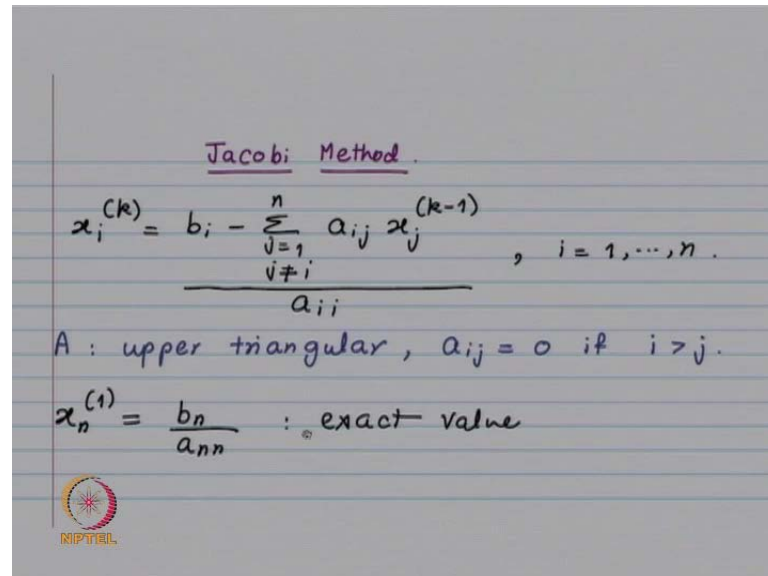 Jacobi Method.
x_i^(k) = (b_i - Σ_{j=1, j≠i}^{n} a_ij x_j^(k-1)) / a_ii , i = 1, ..., n.
A : upper triangular, a_ij = 0 if i > j.
x_n^(1) = b_n / a_nn : exact value
NPTEL